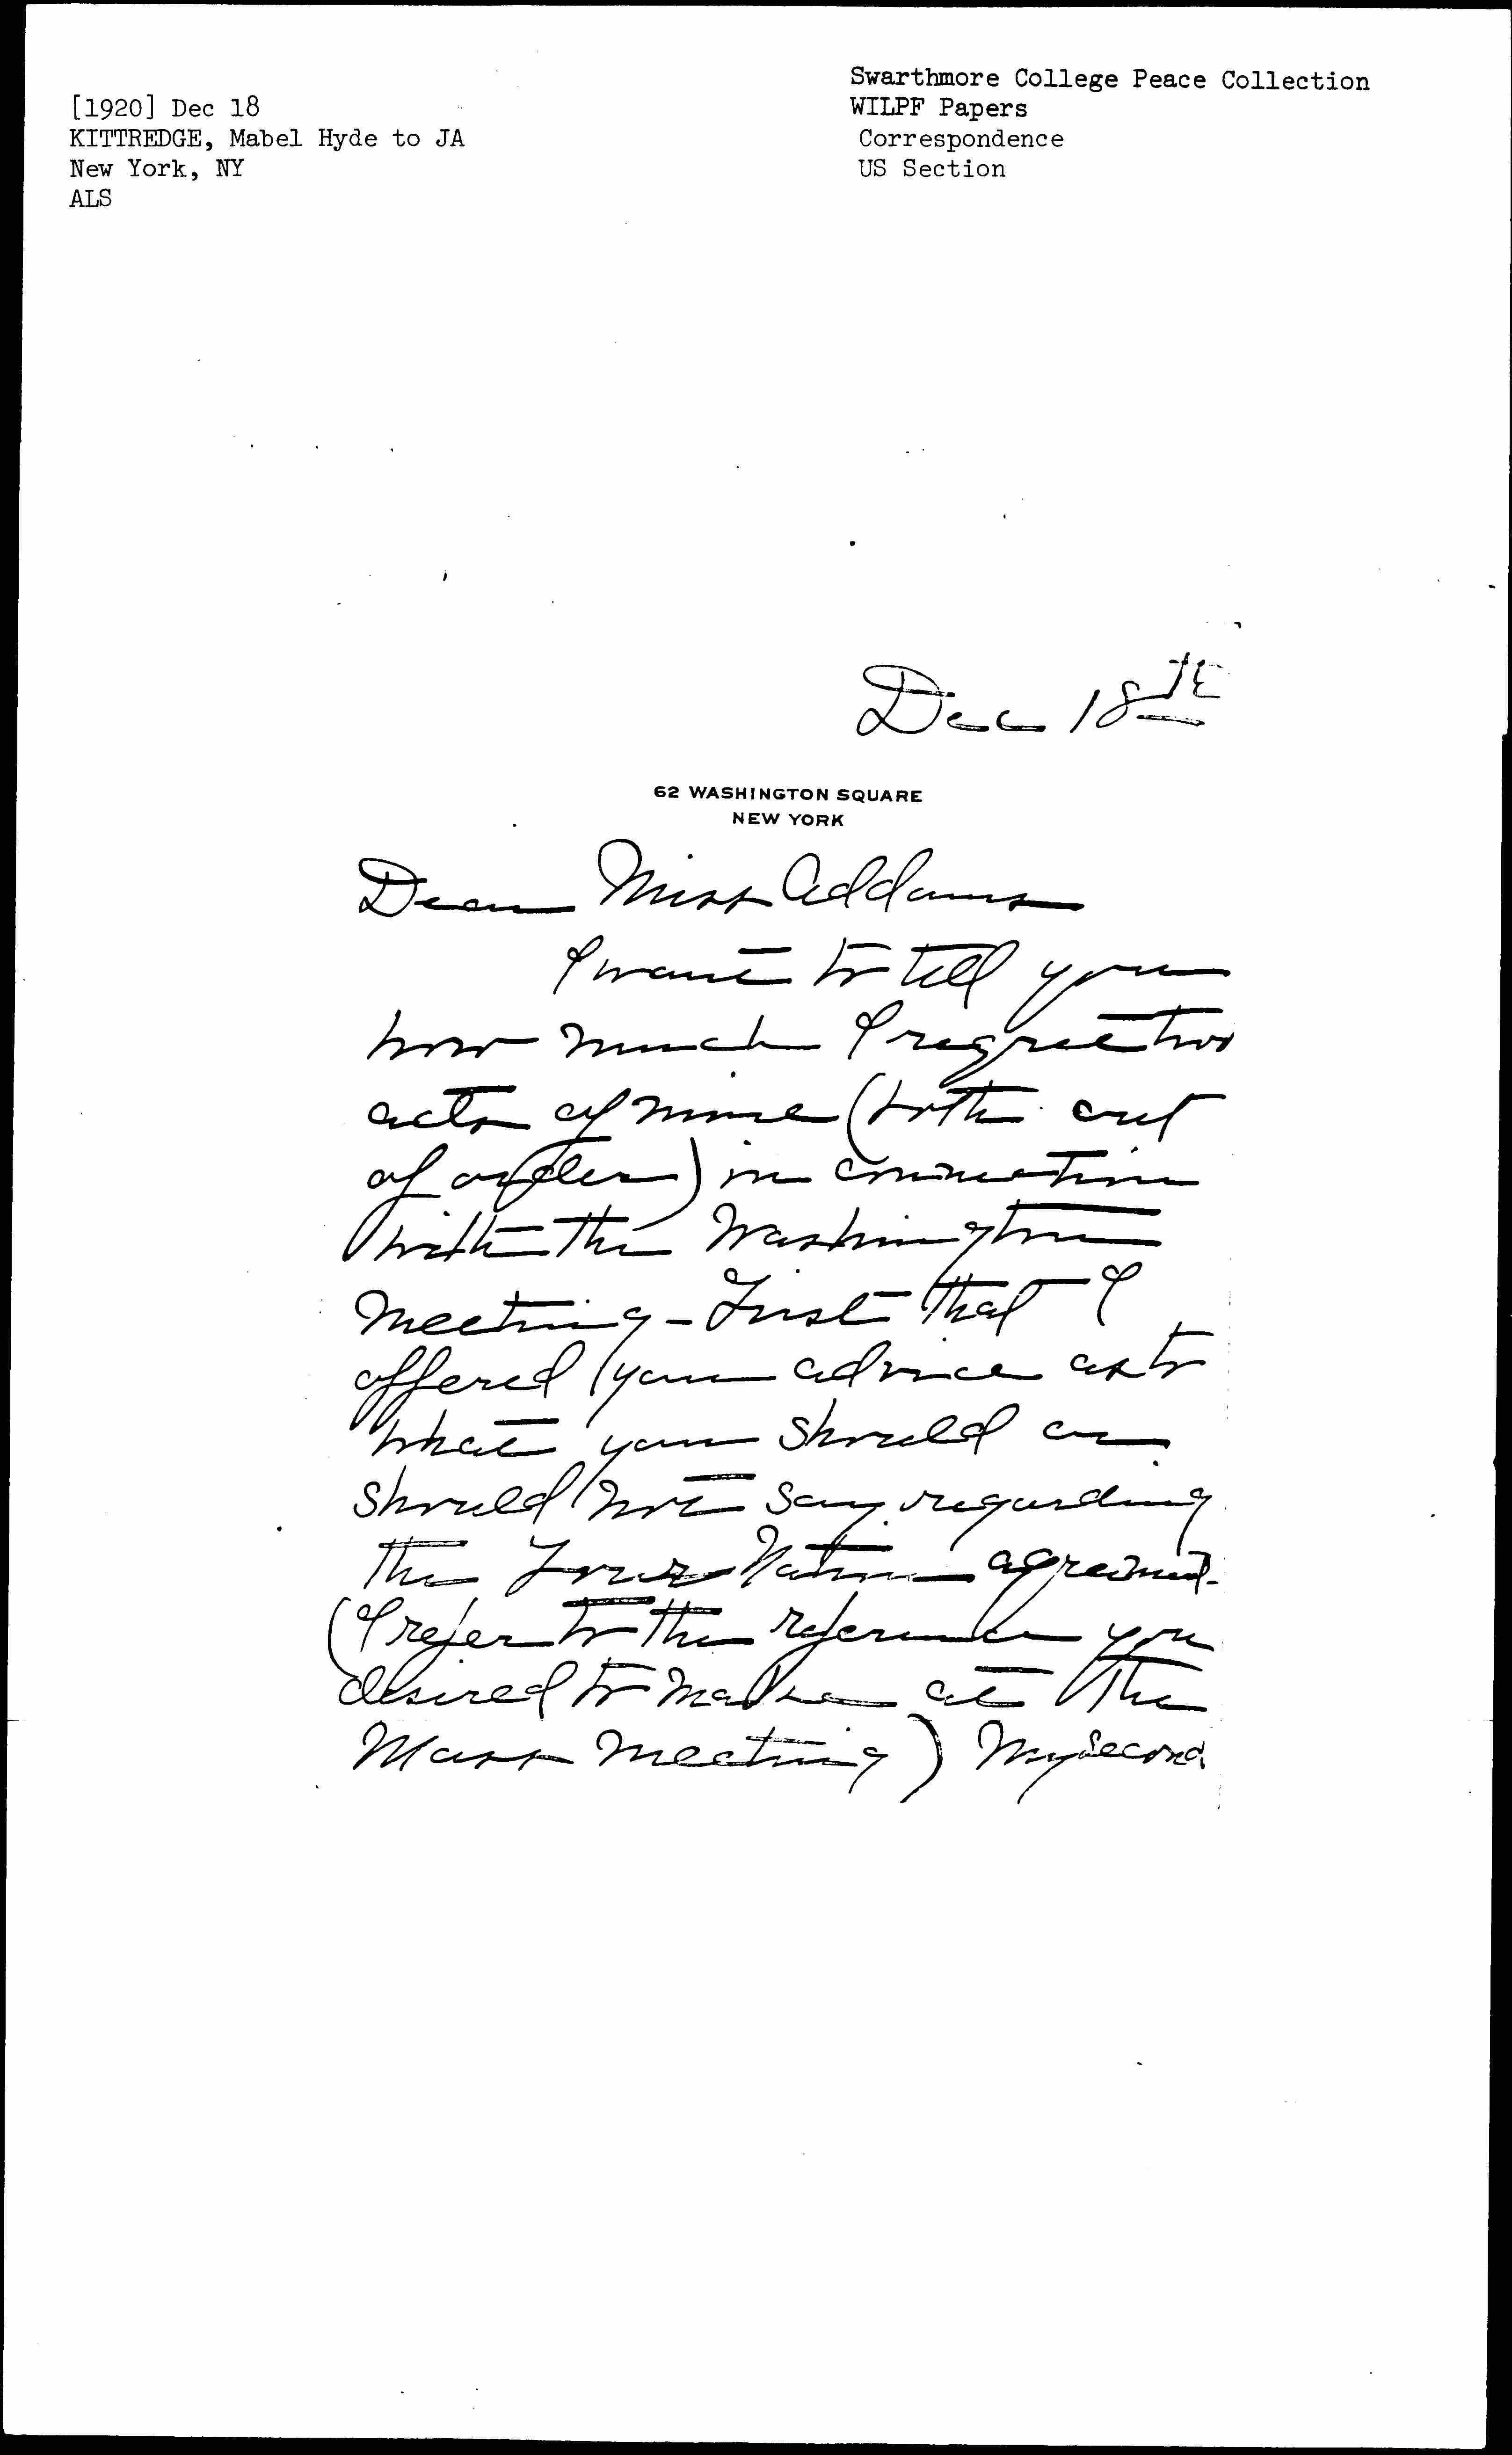 [1920] Dec 18
KITTREDGE, Mabel Hyde to JA
New York, NY
ALS
Swarthmore College Peace Collection
WILPF Papers
Correspondence
US Section
Dec 18th
62 WASHINGTON SQUARE
NEW YORK
Dear Miss Addams
I want to tell you
how much I regret two
acts of mine (both out
of order) in connection
with the Washington
meeting - First that I
offered you advice as to
what you should or
should not say regarding
the Four Nation agreement.
(I refer to the reference you
desired to make at the
Mass meeting) My second